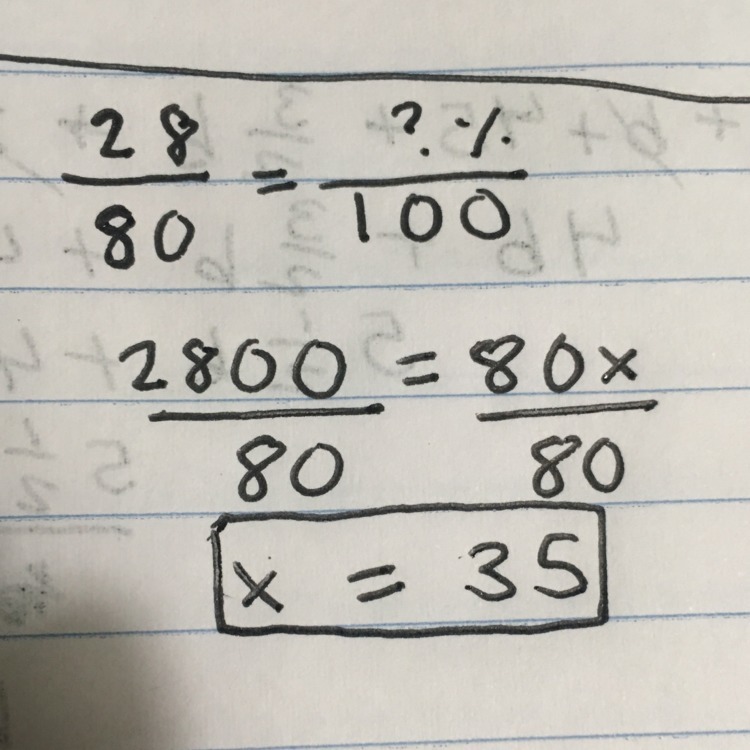 28 = ?%
80 100
2800 = 80x
80 80
x = 35